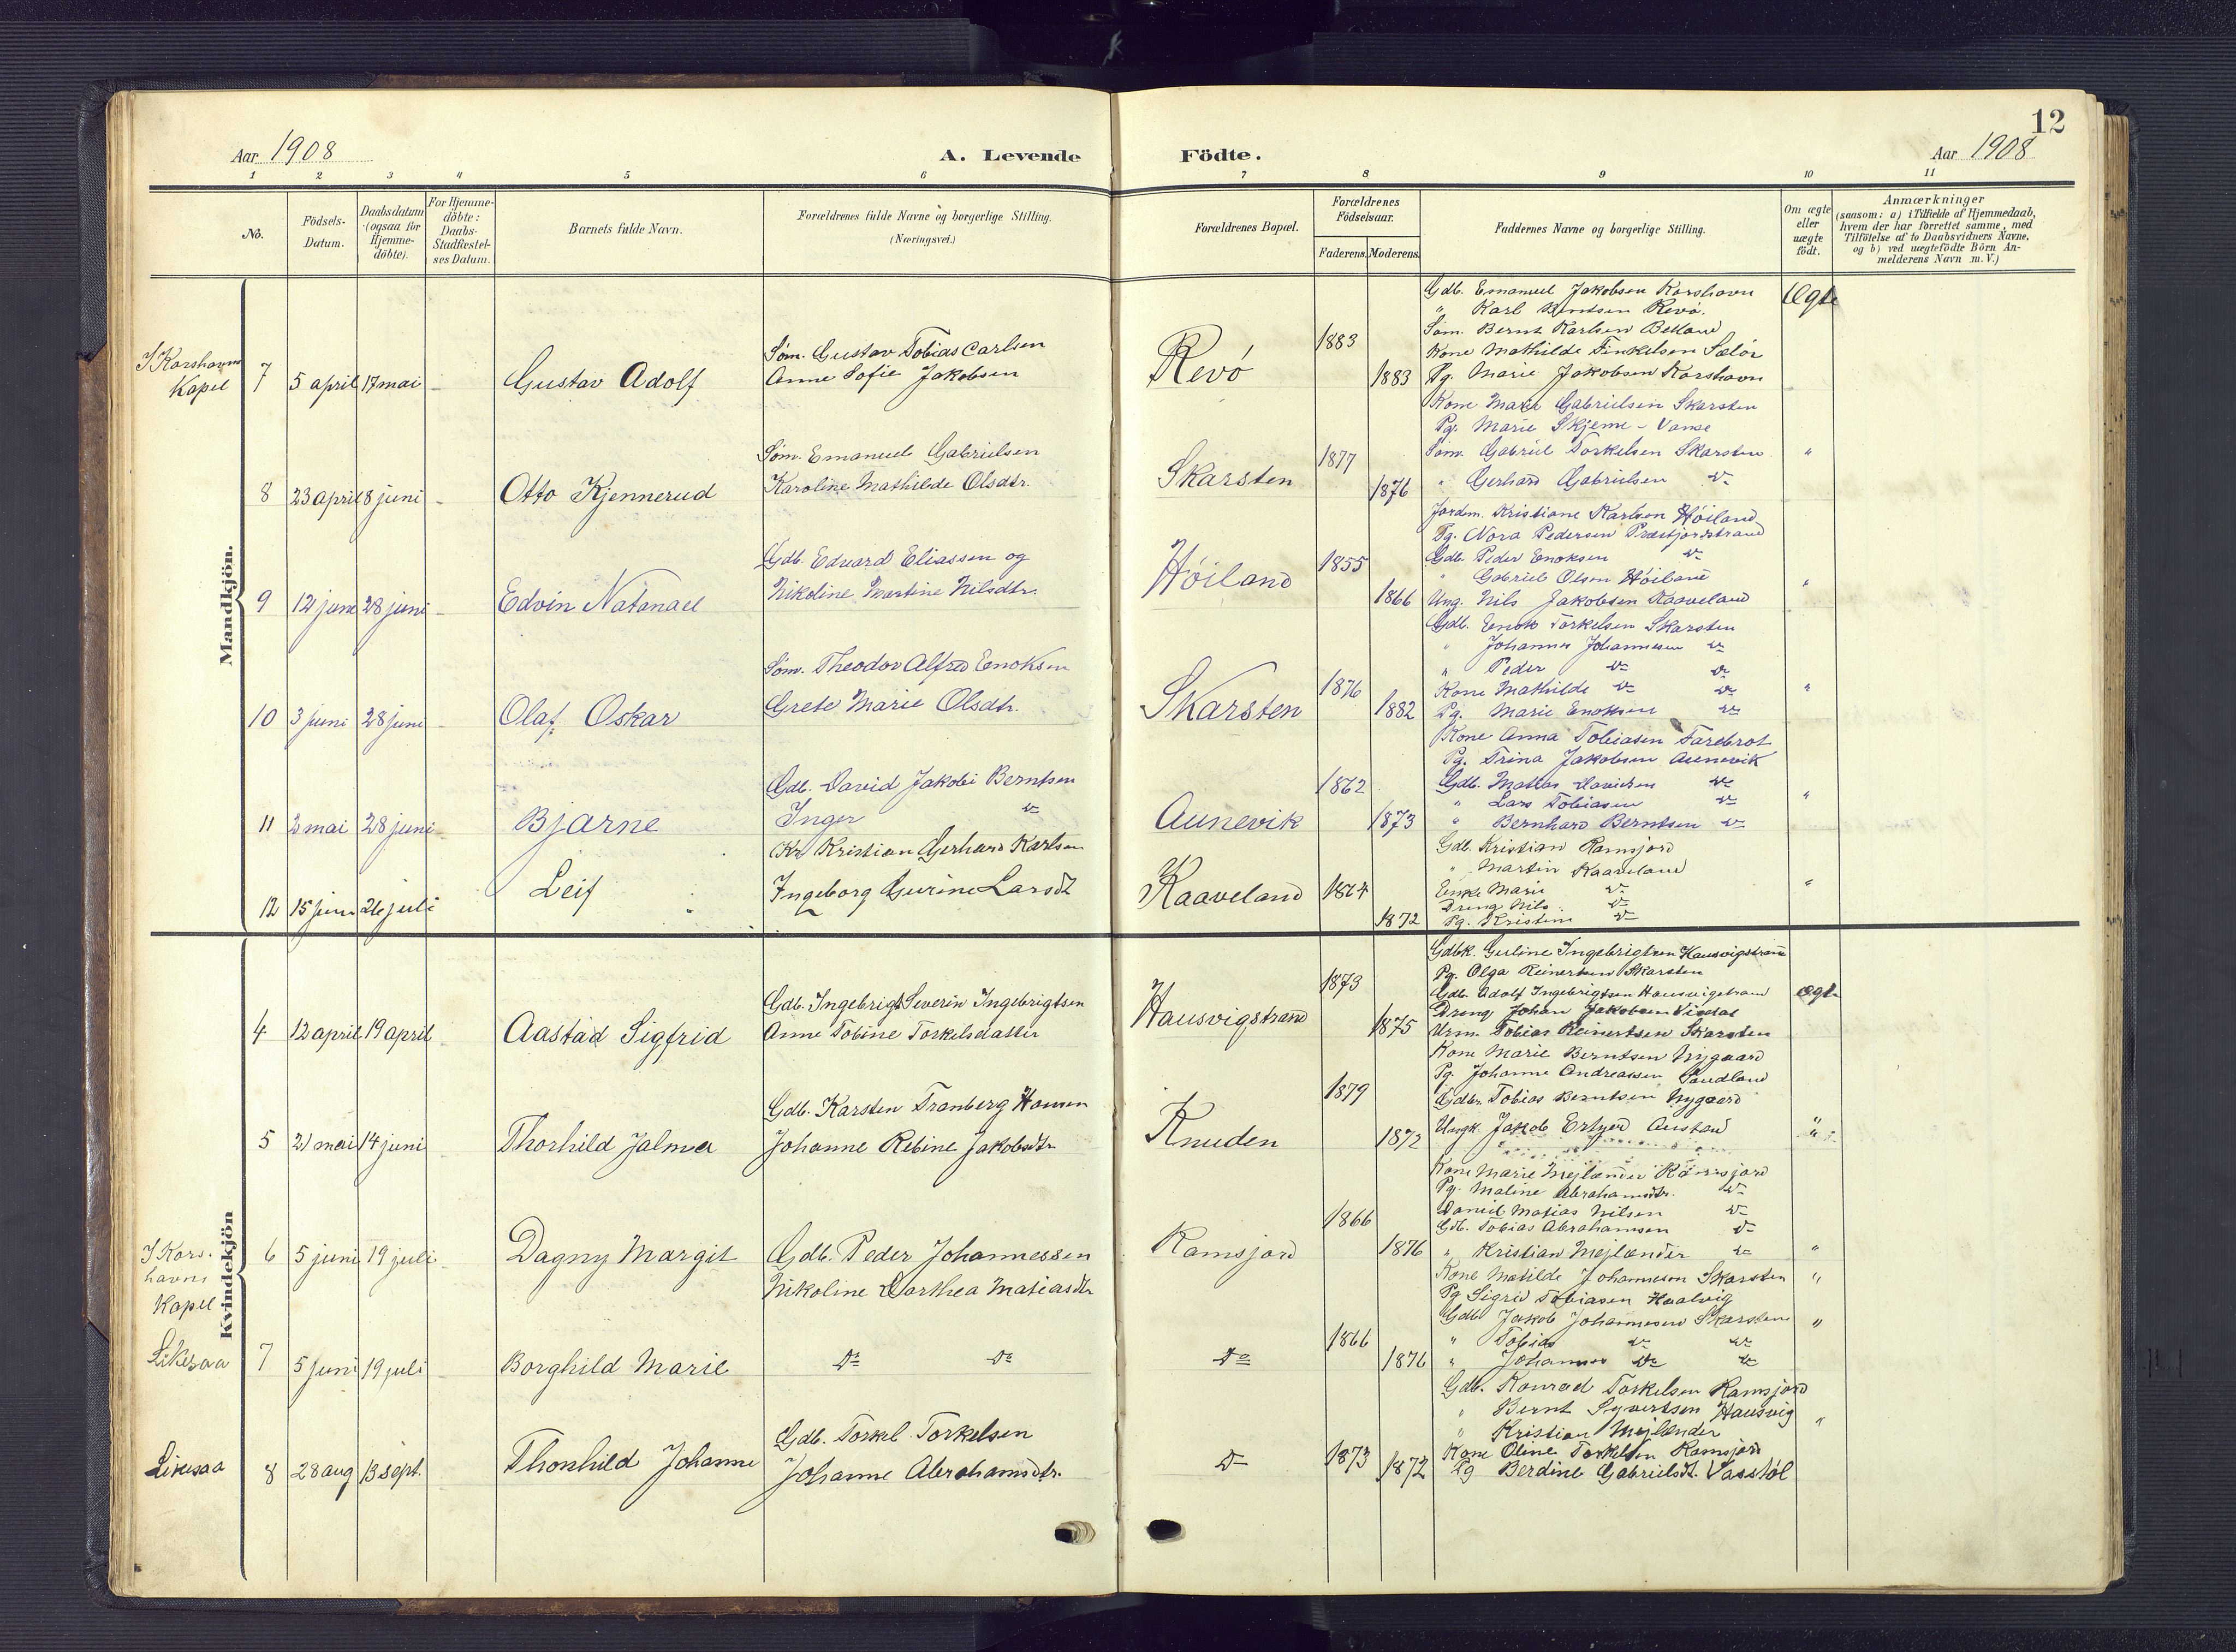 12
Aar 1908
A. Levende Födte.
Aar 1908
1 2 3 4 5 6 7 8 9 10 11
No.
Födsels-Datum.
Daabsdatum (ogsaa for Hjemme-döbte).
For Hjemme-döbte: Daabs-Stadfæstel-ses Datum.
Barnets fulde Navn.
Forældrenes fulde Navne og borgerlige Stilling. (Næringsvei.)
Forældrenes Bopæl.
Forældrenes Födselsaar.
Faderens. Moderens.
Faddernes Navne og borgerlige Stilling.
Om ægte eller uægte födt.
Anmærkninger
(saasom: a) i Tilfælde af Hjemmedaab, hvem der har forrettet samme, med Tilföielse af to Daabsvidners Navne, og b) ved uægtefödte Börn An-melderens Navn m. V.)
Mandkjön.
I Korshavns Kapel
7 5 april 17 mai - Gustav Adolf
Søm. Gustav Tobias Carlsen
Anne Sofie Jakobsen
Revö 1883 1883
Gdb. Emanuel Jakobsen Korshavn
" Karl Berntsen Revö.
Søm. Bernt Karlsen
Kone Mathilde Tenkelsen Selör
Pg. Marie Jakobsen Korshavn
Ægte
8 23 april 8 juni - Otto Kjennerud
Søm. Emanuel Gabrielsen
Karoline Mathilde Olsdtr.
Skarsten 1877 1876
Kone Marie Gabrielsen Skarsten
Pg. Marie Skjeme - Vanse
Søm. Gabriel Torkelsen Skarsten
" Gerhard Gabrielsen do
"
9 12 juni 28 juni - Edvin Natanael
Gdb. Edvard Eliassen og
Nikoline Martine Nilsdtr.
Höiland 1855 1866
Jordm. Kristiane Karlsen Höiland
Pg. Nora Pedersen Præstjordstrand
Gdb. Peder Enoksen do
" Gabriel Olsen Höiland
Ung. Nils Jakobsen Kaaveland
"
10 3 juni 28 juni - Olaf Oskar
Søm. Theodor Alfred Enoksen
Grete Marie Olsdtr.
Skarsten 1876 1882
Gdb. Enok Torkelsen Skarsten
" Johannes Johannesen do
" Peder do do
Kone Mathilde do do
Pg. Marie Enoksen do
"
11 2 mai 28 juni - Bjarne
Gdb. David Jakobi Berntsen
Inger do
Aunevik 1862 1873
Kone Anna Tobiasen Farebrot
Pg. Trina Jakobsen Aunevik
Gdb. Mathias Davidsen do
" Lars Tobiasen do
" Bernhard Berntsen do
"
12 15 juni 26 juli Leif
Kristian Gerhard Karlsen
Ingeborg Gurine Larsdt
Kaaveland 1864 1872
Gdb. Kristian Ramsjord
" Martin Kaaveland
Enke Marie do
Dreng Nils do
Pg. Kristine do
"
Kvindekjön
4 12 april 19 april - Aastad Sigfrid
Gdb. Ingebrigt Severin Ingebrigtsen
Anne Tobine Torkelsdatter
Hausvigstrand 1873 1875
Gdbk. Guline Ingebrigtsen Hausvigstrand
Pg. Olga Reinertsen Skarsten
Gdb. Adolf Ingebrigtsen Hausvigstrand
Dreng Johan Jakobsen
Tobias Reinertsen Skarsten
Ægte
5 21 mai 14 juni Thorhild Jalma
Gdb. Karsten Tranberg Hansen
Johanne Rebine Jakobsdtr.
Knuden 1879 1872
Kone Marie Berntsen Nygaard
Pg. Johanne Andreassen Sandland
Gdbr. Tobias Berntsen Nygaard
Ungk. Jakob Austad
"
I Kors-havns Kapel
6 5 juni 19 juli - Dagny Margit
Gdb. Peder Johannessen
Nikoline Dorthea Matiasdtr
Ramsjord 1866 1876
Kone Marie Mejlænder Ramsjord
Pg. Maline Abrahamsdtr. do
Daniel Matias Nilsen do
Gdb. Tobias Abrahamsen do
" Kristian Mejlænder do
"
Likesaa
7 5 juni 19 juli - Borghild Marie
do do
do 1866 1876
Kone Matilde Johannesen Skarsten
Pg Sigrid Tobiasen Haalvig
Gdb Jakob Johannesen Skarsten
" Tobias do do
" Johannes do do
"
"
Likesaa
8 28 aug 13 sept. Thorhild Johanne
Gdb. Torkel Torkelsen
Johanne Abrahamsdtr.
do 1873 1872
Gdb. Konrad Torkelsen Ramsjord
" Bernt Syvertsen Hausvig
" Kristian Mejlænder
Kone Oline Torkelsen Ramsjord
Pg Berdine Gabrielsdt. Vasstöl
"